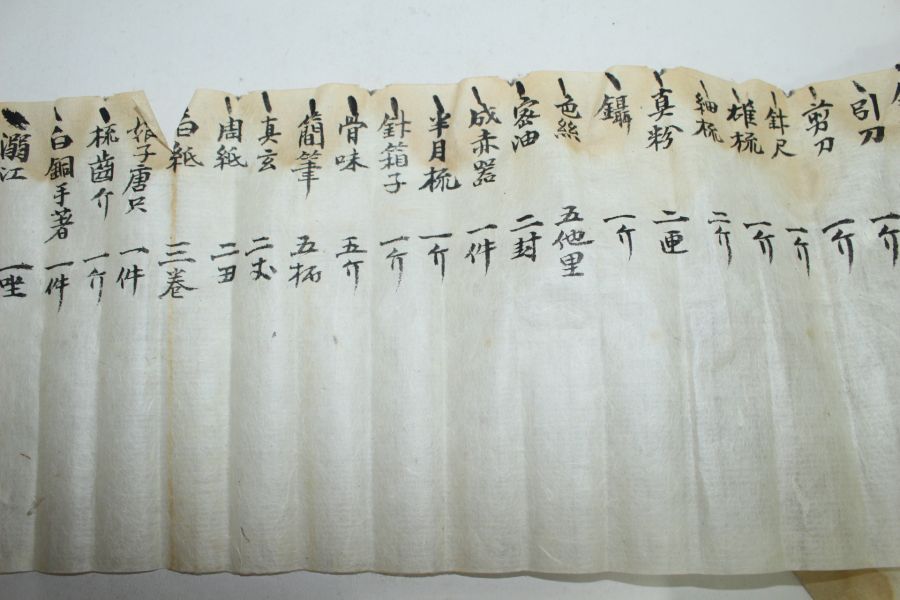 引刀 一介
剪刀 一介
針尺 一介
雄梳 一介
細梳 二介
真粉 二匣
鑷 一介
色絲 五他里
蜜油 二封
成赤器 一件
半月梳 一介
針箱子 一介
骨味 五介
簡筆 五柄
真玄 二丈
周紙 二丑
白紙 三卷
娘子唐只 一件
梳齒介 一介
白銅手著 一件
溺江 一坐